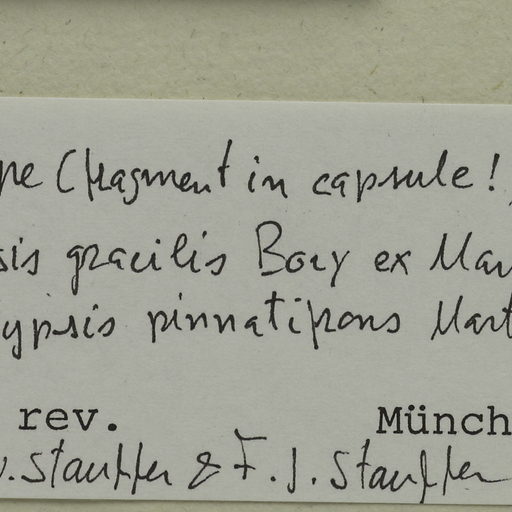 pe (fragment in capsule!)
sis gracilis Bory ex Mar
ypsis pinnatifrons Mart
rev. Münch
v. Stauffer & F. J. Stauffer